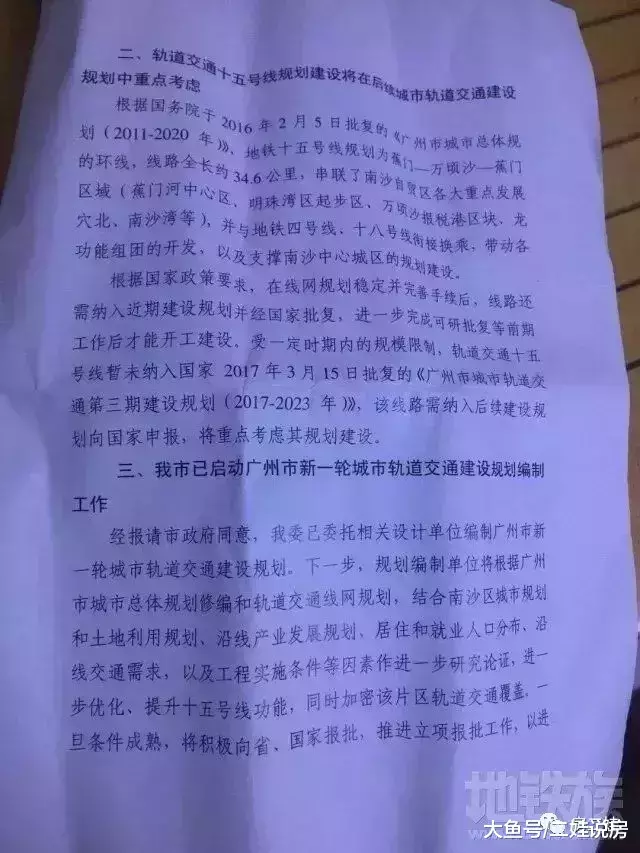 二、轨道交通十五号线规划建设将在后续城市轨道交通建设
规划中重点考虑
根据国务院于 2016 年 2 月 5 日批复的《广州市城市总体规
划（2011-2020 年）》，地铁十五号线规划为蕉门—万顷沙—蕉门
的环线，线路全长约 34.6 公里，串联了南沙自贸区各大重点发展
区域（蕉门河中心区、明珠湾区起步区、万顷沙报税港区块、龙
穴北、南沙湾等），并与地铁四号线、十八号线衔接换乘，带动各
功能组团的开发，以及支撑南沙中心城区的规划建设。
根据国家政策要求，在线网规划稳定并完善手续后，线路还
需纳入近期建设规划并经国家批复，进一步完成可研批复等前期
工作后才能开工建设。受一定时期内的规模限制，轨道交通十五
号线暂未纳入国家 2017 年 3 月 15 日批复的《广州市城市轨道交
通第三期建设规划（2017-2023 年）》，该线路需纳入后续建设规
划向国家申报，将重点考虑其规划建设。
三、我市已启动广州市新一轮城市轨道交通建设规划编制
工作
经报请市政府同意，我委已委托相关设计单位编制广州市新
一轮城市轨道交通建设规划。下一步，规划编制单位将根据广州
市城市总体规划修编和轨道交通线网规划，结合南沙区城市规划
和土地利用规划、沿线产业发展规划、居住和就业人口分布、沿
线交通需求，以及工程实施条件等因素作进一步研究论证，进一
步优化、提升十五号线功能，同时加密该片区轨道交通覆盖。一
旦条件成熟，将积极向省、国家报批，推进立项报批工作，以进
地铁族
大鱼号/立娃说房